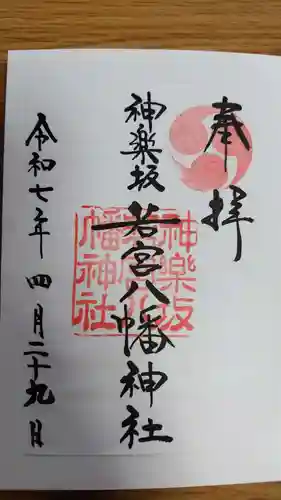 奉拝
神楽坂若宮八幡神社
令和七年四月二十九日
神楽坂
若宮八
幡神社